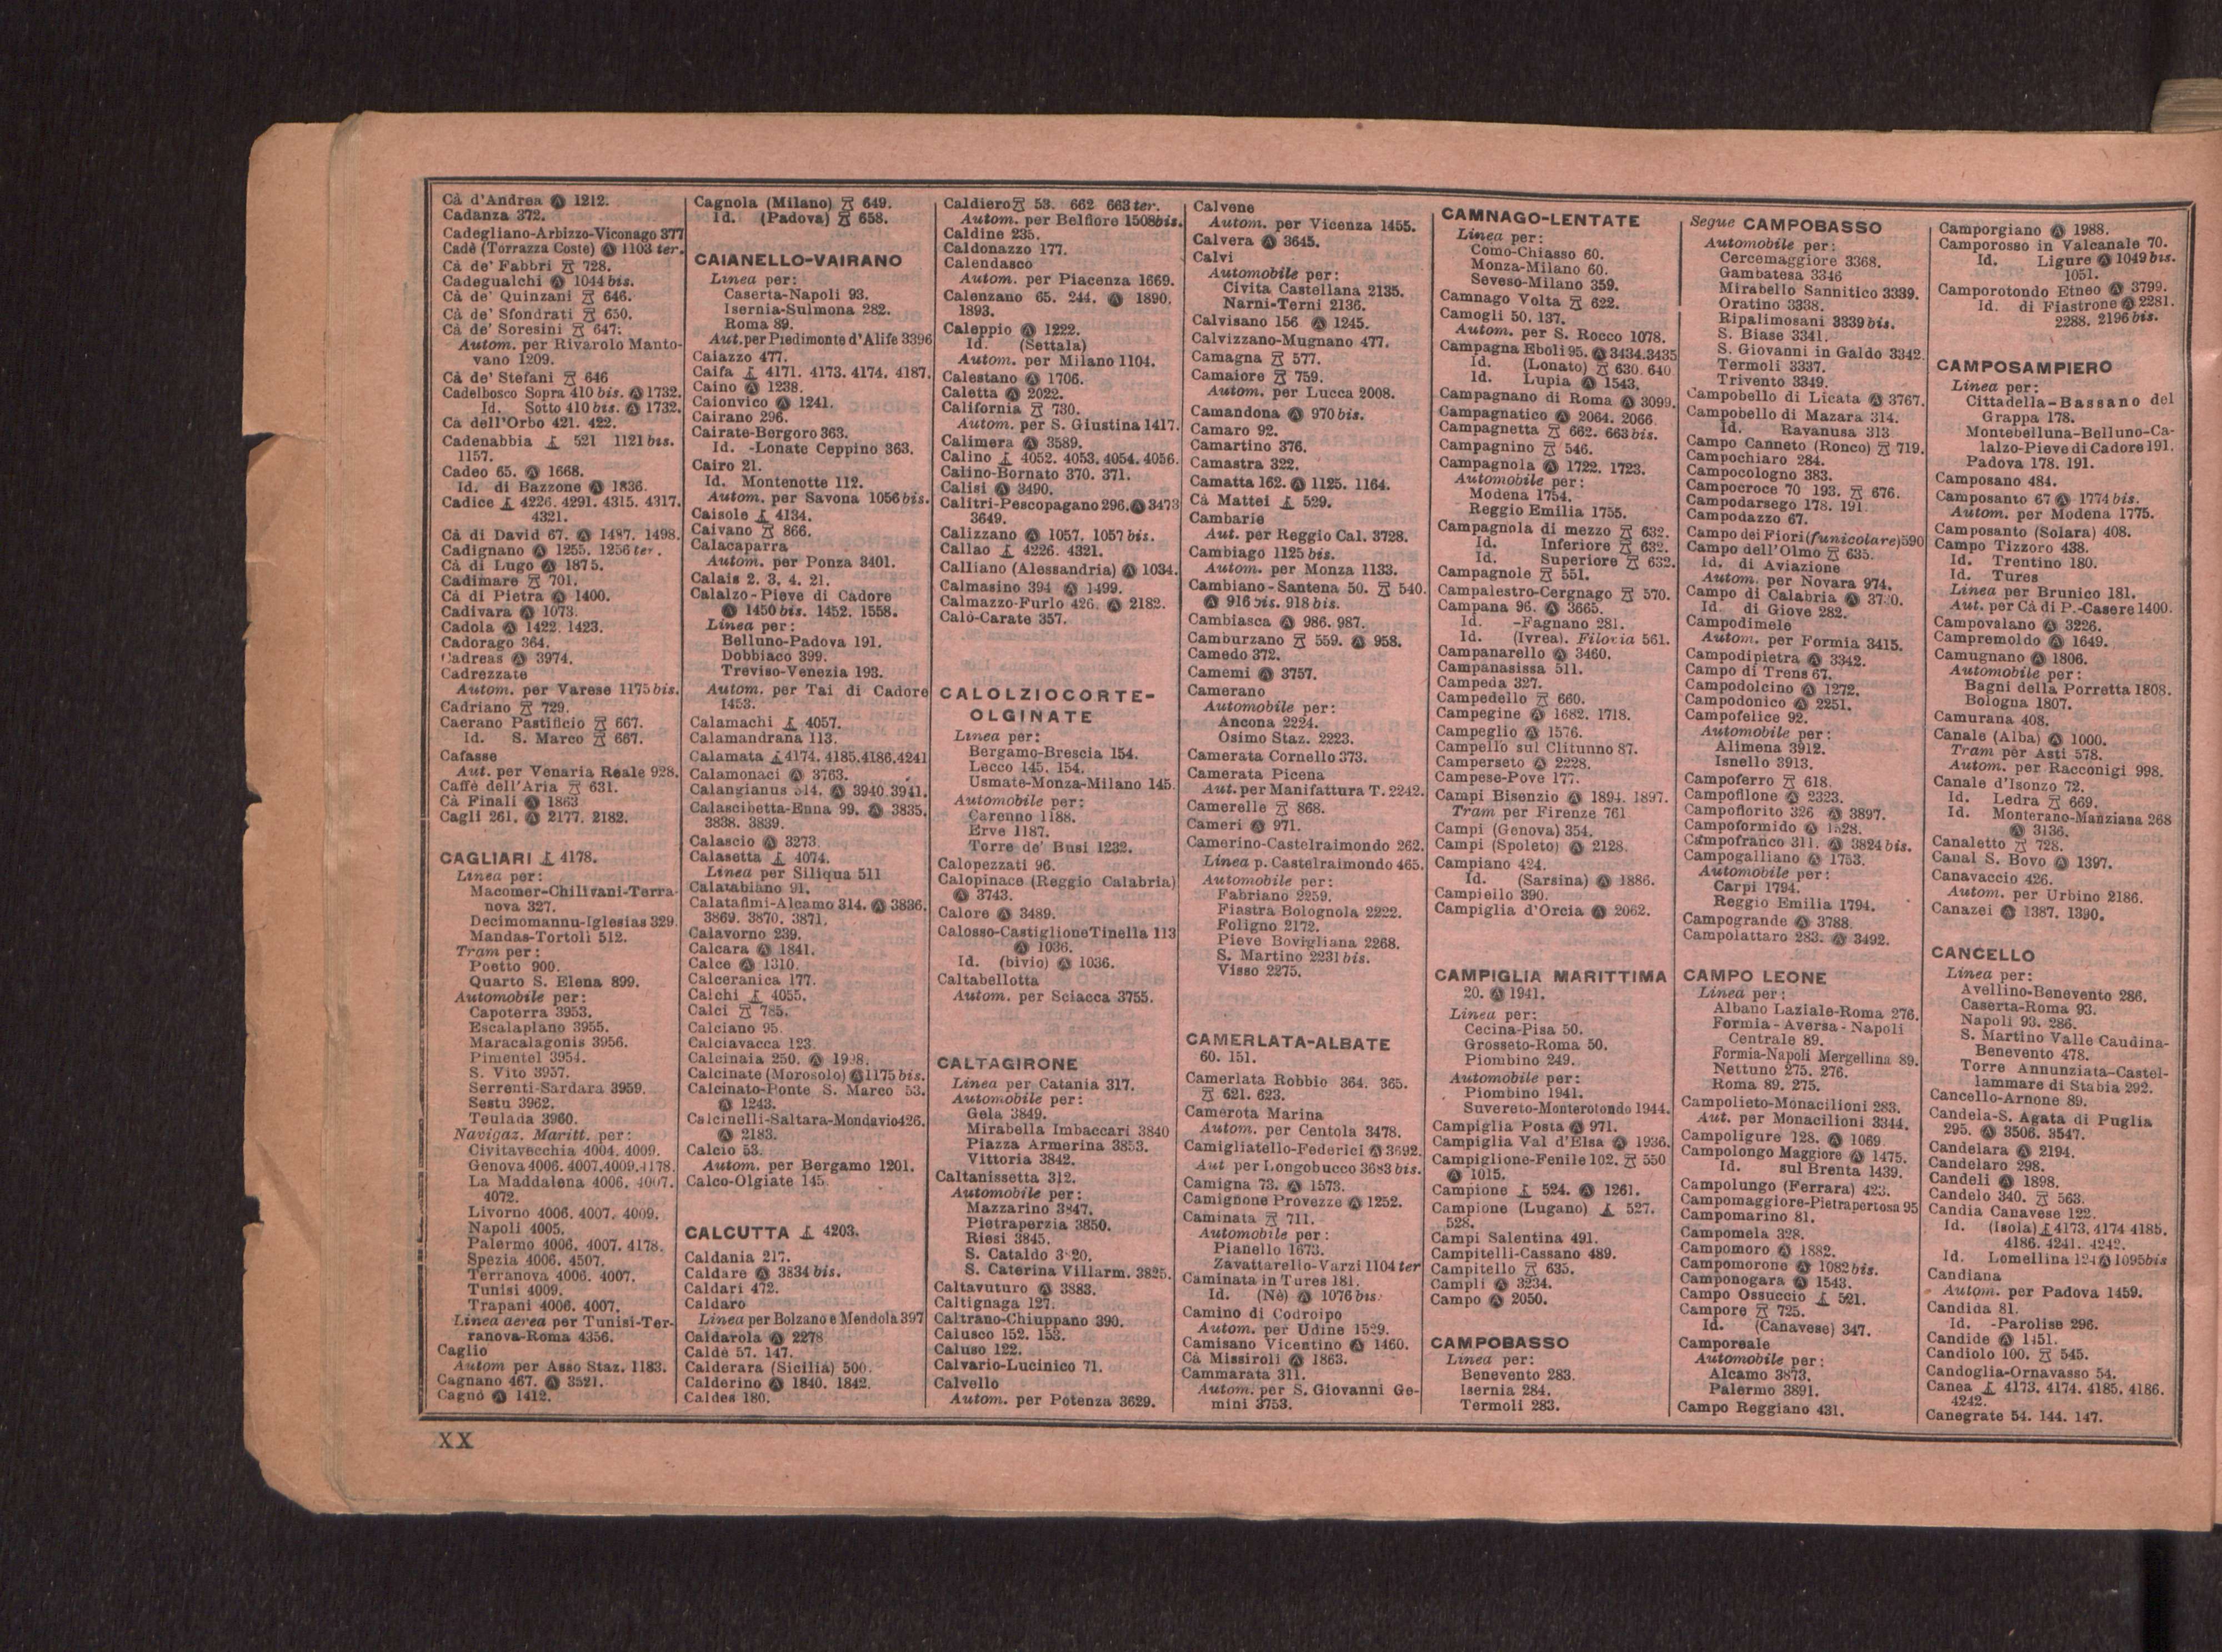 Cà d'Andrea Ⓐ 1212.
Cadanza 372.
Cadegliano-Arbizzo-Viconago 377
Cadè (Torrazza Coste) Ⓐ 1103 ter.
Cà de' Fabbri 728.
Cadegualchi Ⓐ 1044 bis.
Cà de' Quinzani 646.
Cà de' Sfondrati 650.
Cà de' Soresini 647.
Autom. per Rivarolo Manto-
vano 1209.
Cà de' Stefani 646
Cadelbosco Sopra 410 bis. Ⓐ 1732.
Id. Sotto 410 bis. Ⓐ 1732.
Cà dell'Orbo 421. 422.
Cadenabbia 521 1121 bis.
1157.
Cadeo 65. Ⓐ 1668.
Id. di Bazzone Ⓐ 1836.
Cadice 4226. 4291. 4315. 4317.
4321.
Cà di David 67. Ⓐ 1487. 1498.
Cadignano Ⓐ 1255. 1256 ter.
Cà di Lugo Ⓐ 1875.
Cadimare 701.
Cà di Pietra Ⓐ 1400.
Cadivara Ⓐ 1073.
Cadola Ⓐ 1422. 1423.
Cadorago 364.
Cadreas Ⓐ 3974.
Cadrezzate
Autom. per Varese 1175 bis.
Cadriano 729.
Caerano Pastificio 667.
Id. S. Marco 667.
Cafasse
Aut. per Venaria Reale 928.
Caffè dell'Aria 631.
Cà Finali Ⓐ 1863
Cagli 261. Ⓐ 2177. 2182.
CAGLIARI 4178.
Linea per:
Macomer-Chilivani-Terra-
nova 327.
Decimomannu-Iglesias 329.
Mandas-Tortoli 512.
Tram per:
Poetto 900.
Quarto S. Elena 899.
Automobile per:
Capoterra 3953.
Escalaplano 3955.
Maracalagonis 3956.
Pimentel 3954.
S. Vito 3957.
Serrenti-Sardara 3959.
Sestu 3962.
Teulada 3960.
Navigaz. Maritt. per:
Civitavecchia 4004. 4009.
Genova 4006. 4007. 4009. 4178.
La Maddalena 4006. 4007.
4072.
Livorno 4006. 4007. 4009.
Napoli 4005.
Palermo 4006. 4007. 4178.
Spezia 4006. 4507.
Terranova 4006. 4007.
Tunisi 4009.
Trapani 4006. 4007.
Linea aerea per Tunisi-Ter-
ranova-Roma 4356.
Caglio
Autom per Asso Staz. 1183.
Cagnano 467. Ⓐ 3521.
Cagnò Ⓐ 1412.
Cagnola (Milano) 649.
Id. (Padova) 658.
CAIANELLO-VAIRANO
Linea per:
Caserta-Napoli 93.
Isernia-Sulmona 282.
Roma 89.
Aut. per Piedimonte d'Alife 3396
Caiazzo 477.
Caifa 4171. 4173. 4174. 4187.
Caino Ⓐ 1238.
Caionvico Ⓐ 1241.
Cairano 296.
Cairate-Bergoro 363.
Id. -Lonate Ceppino 363.
Cairo 21.
Id. Montenotte 112.
Autom. per Savona 1056 bis.
Caisole 4134.
Caivano 866.
Calacaparra
Autom. per Ponza 3401.
Calais 2. 3. 4. 21.
Calalzo-Pieve di Cadore
Ⓐ 1450 bis. 1452. 1558.
Linea per:
Belluno-Padova 191.
Dobbiaco 399.
Treviso-Venezia 193.
Autom. per Tai di Cadore
1453.
Calamachi 4057.
Calamandrana 113.
Calamata 4174. 4185. 4186. 4241
Calamonaci Ⓐ 3763.
Calangianus 514. Ⓐ 3940. 3941.
Calascibetta-Enna 99. Ⓐ 3835.
3838. 3839.
Calascio Ⓐ 3273
Calasetta 4074.
Linea per Siliqua 511
Calatabiano 91.
Calatafimi-Alcamo 314. Ⓐ 3836.
3869. 3870. 3871.
Calavorno 239.
Calcara Ⓐ 1841.
Calce Ⓐ 1310.
Calceranica 177.
Calchi 4055.
Calci 785.
Calciano 95.
Calciavacca 123.
Calcinaia 250. Ⓐ 1998.
Calcinate (Morosolo) Ⓐ 1175 bis.
Calcinato-Ponte S. Marco 53.
Ⓐ 1243.
Calcinelli-Saltara-Mondavio 426.
Ⓐ 2183.
Calcio 53.
Autom. per Bergamo 1201.
Calco-Olgiate 145.
CALCUTTA 4203.
Caldania 217.
Caldare Ⓐ 3834 bis.
Caldari 472.
Caldaro
Linea per Bolzano e Mendola 397
Caldarola Ⓐ 2278
Caldè 57. 147.
Calderara (Sicilia) 500.
Calderino Ⓐ 1840. 1842.
Caldes 180.
Caldiero 53. 662 663 ter.
Autom. per Belfiore 1508 bis.
Caldine 235.
Caldonazzo 177.
Calendasco
Autom. per Piacenza 1669.
Calenzano 65. 244. Ⓐ 1890.
1893.
Caleppio Ⓐ 1222.
Id. (Settala)
Autom. per Milano 1104.
Calestano Ⓐ 1706.
Caletta Ⓐ 2022.
California 730.
Autom. per S. Giustina 1417.
Calimera Ⓐ 3589.
Calino 4052. 4053. 4054. 4056.
Calino-Bornato 370. 371.
Calisi Ⓐ 3490.
Calitri-Pescopagano 296. Ⓐ 3473
3649.
Calizzano Ⓐ 1057. 1057 bis.
Callao 4226. 4321.
Calliano (Alessandria) Ⓐ 1034.
Calmasino 394 Ⓐ 1499.
Calmazzo-Furlo 426. Ⓐ 2182.
Calò-Carate 357.
CALOLZIOCORTE-
OLGINATE
Linea per:
Bergamo-Brescia 154.
Lecco 145. 154.
Usmate-Monza-Milano 145.
Automobile per:
Carenno 1188.
Erve 1187.
Torre de' Busi 1232.
Calopezzati 96.
Calopinace (Reggio Calabria)
Ⓐ 3743.
Calore Ⓐ 3489.
Calosso-Castiglione Tinella 113
Ⓐ 1036.
Id. (bivio) Ⓐ 1036.
Caltabellotta
Autom. per Sciacca 3755.
CALTAGIRONE
Linea per Catania 317.
Automobile per:
Gela 3849.
Mirabella Imbaccari 3840
Piazza Armerina 3853.
Vittoria 3842.
Caltanissetta 312.
Automobile per:
Mazzarino 3847.
Pietraperzia 3850.
Riesi 3845.
S. Cataldo 3 20.
S. Caterina Villarm. 3825.
Caltavuturo Ⓐ 3883.
Caltignaga 127.
Caltrano-Chiuppano 390.
Calusco 152. 153.
Caluso 122.
Calvario-Lucinico 71.
Calvello
Autom. per Potenza 3629.
Calvene
Autom. per Vicenza 1455.
Calvera Ⓐ 3645.
Calvi
Automobile per:
Civita Castellana 2135.
Narni-Terni 2136.
Calvisano 156 Ⓐ 1245.
Calvizzano-Mugnano 477.
Camagna 577.
Camaiore 759.
Autom. per Lucca 2008.
Camandona Ⓐ 970 bis.
Camaro 92.
Camartino 376.
Camastra 322.
Camatta 162. Ⓐ 1125. 1164.
Cà Mattei 529.
Cambarie
Aut. per Reggio Cal. 3728.
Cambiago 1125 bis.
Autom. per Monza 1133.
Cambiano-Santena 50. 540.
Ⓐ 916 bis. 918 bis.
Cambiasca Ⓐ 986. 987.
Camburzano 559. Ⓐ 958.
Camedo 372.
Camemi Ⓐ 3757.
Camerano
Automobile per:
Ancona 2224.
Osimo Staz. 2223.
Camerata Cornello 373.
Camerata Picena
Aut. per Manifattura T. 2242.
Camerelle 868.
Cameri Ⓐ 971.
Camerino-Castelraimondo 262.
Linea p. Castelraimondo 465.
Automobile per:
Fabriano 2259.
Fiastra Bolognola 2222.
Foligno 2172.
Pieve Bovigliana 2268.
S. Martino 2231 bis.
Visso 2275.
CAMERLATA-ALBATE
60. 151.
Camerlata Robbio 364. 365.
621. 623.
Camerota Marina
Autom. per Centola 3478.
Camigliatello-Federici Ⓐ 3692.
Aut per Longobucco 3683 bis.
Camigna 73. Ⓐ 1573.
Camignone Provezze Ⓐ 1252.
Caminata 711.
Automobile per:
Pianello 1673.
Zavattarello-Varzi 1104 ter
Caminata in Tures 181.
Id. (Nè) Ⓐ 1076 bis.
Camino di Codroipo
Autom. per Udine 1529.
Camisano Vicentino Ⓐ 1460.
Cà Missiroli Ⓐ 1863.
Cammarata 311.
Autom. per S. Giovanni Ge-
mini 3753.
CAMNAGO-LENTATE
Linea per:
Como-Chiasso 60.
Monza-Milano 60.
Seveso-Milano 359.
Camnago Volta 622.
Camogli 50. 137.
Autom. per S. Rocco 1078.
Campagna Eboli 95. Ⓐ 3434. 3435
Id. (Lonato) 630. 640
Id. Lupia Ⓐ 1543.
Campagnano di Roma Ⓐ 3099.
Campagnatico Ⓐ 2064. 2066
Campagnetta 662. 663 bis.
Campagnino 546.
Campagnola Ⓐ 1722. 1723.
Automobile per:
Modena 1754.
Reggio Emilia 1755.
Campagnola di mezzo 632.
Id. Inferiore 632.
Id. Superiore 632.
Campagnole 551.
Campalestro-Cergnago 570.
Campana 96. Ⓐ 3665.
Id. -Fagnano 281.
Id. (Ivrea). Filovia 561.
Campanarello Ⓐ 3460.
Campanasissa 511.
Campeda 327.
Campedello 660.
Campegine Ⓐ 1682. 1718.
Campeglio Ⓐ 1576.
Campello sul Clitunno 87.
Camperseto Ⓐ 2228.
Campese-Pove 177.
Campi Bisenzio Ⓐ 1894. 1897.
Tram per Firenze 761
Campi (Genova) 354.
Campi (Spoleto) Ⓐ 2128.
Campiano 424.
Id. (Sarsina) Ⓐ 1886.
Campiello 390.
Campiglia d'Orcia Ⓐ 2062.
CAMPIGLIA MARITTIMA
20. Ⓐ 1941.
Linea per:
Cecina-Pisa 50.
Grosseto-Roma 50.
Piombino 249.
Automobile per:
Piombino 1941.
Suvereto-Monterotondo 1944.
Campiglia Posta Ⓐ 971.
Campiglia Val d'Elsa Ⓐ 1936.
Campiglione-Fenile 102. 550
Ⓐ 1015.
Campione 524. Ⓐ 1261.
Campione (Lugano) 527.
528.
Campi Salentina 491.
Campitelli-Cassano 489.
Campitello 635.
Campli Ⓐ 3234.
Campo Ⓐ 2050.
CAMPOBASSO
Linea per:
Benevento 283.
Isernia 284.
Termoli 283.
Segue CAMPOBASSO
Automobile per:
Cercemaggiore 3368.
Gambatesa 3346
Mirabello Sannitico 3339.
Oratino 3338.
Ripalimosani 3339 bis.
S. Biase 3341.
S. Giovanni in Galdo 3342.
Termoli 3337.
Trivento 3349.
Campobello di Licata Ⓐ 3767.
Campobello di Mazara 314.
Id. Ravanusa 313
Campo Canneto (Ronco) 719.
Campochiaro 284.
Campocologno 383.
Campocroce 70 193. 676.
Campodarsego 178. 191.
Campodazzo 67.
Campo dei Fiori (funicolare) 590
Campo dell'Olmo 635.
Id. di Aviazione
Autom. per Novara 974.
Campo di Calabria Ⓐ 37 0.
Id. di Giove 282.
Campodimele
Autom. per Formia 3415.
Campodipietra Ⓐ 3342.
Campo di Trens 67.
Campodolcino Ⓐ 1272.
Campodonico Ⓐ 2251.
Campofelice 92.
Automobile per:
Alimena 3912.
Isnello 3913.
Campoferro 618.
Campofilone Ⓐ 2323.
Campofiorito 326 Ⓐ 3897.
Campoformido Ⓐ 1528.
Campofranco 311. Ⓐ 3824 bis.
Campogalliano Ⓐ 1753.
Automobile per:
Carpi 1794.
Reggio Emilia 1794.
Campogrande Ⓐ 3788.
Campolattaro 283. Ⓐ 3492.
CAMPO LEONE
Linea per:
Albano Laziale-Roma 276.
Formia-Aversa-Napoli
Centrale 89.
Formia-Napoli Mergellina 89.
Nettuno 275. 276.
Roma 89. 275.
Campolieto-Monacilioni 283.
Aut. per Monacilioni 3344.
Campoligure 128. Ⓐ 1069
Campolongo Maggiore Ⓐ 1475.
Id. sul Brenta 1439.
Campolungo (Ferrara) 423.
Campomaggiore-Pietrapertosa 95
Campomarino 81.
Campomela 328.
Campomoro Ⓐ 1882.
Campomorone Ⓐ 1082 bis.
Camponogara Ⓐ 1543.
Campo Ossuccio 521.
Campore 725.
Id. (Canavese) 347.
Camporeale
Automobile per:
Alcamo 3873.
Palermo 3891.
Campo Reggiano 431.
Camporgiano Ⓐ 1988.
Camporosso in Valcanale 70.
Id. Ligure Ⓐ 1049 bis.
1051.
Camporotondo Etneo Ⓐ 3799.
Id. di Fiastrone Ⓐ 2281.
2288. 2196 bis.
CAMPOSAMPIERO
Linea per:
Cittadella-Bassano del
Grappa 178.
Montebelluna-Belluno-Ca-
lalzo-Pieve di Cadore 191.
Padova 178. 191.
Camposano 484.
Camposanto 67 Ⓐ 1774 bis.
Autom. per Modena 1775.
Camposanto (Solara) 408.
Campo Tizzoro 438.
Id. Trentino 180.
Id. Tures
Linea per Brunico 181.
Aut. per Cà di P.-Casere 1400.
Campovalano Ⓐ 3226.
Campremoldo Ⓐ 1649.
Camugnano Ⓐ 1806.
Automobile per:
Bagni della Porretta 1808.
Bologna 1807.
Camurana 408.
Canale (Alba) Ⓐ 1000.
Tram per Asti 578.
Autom. per Racconigi 998.
Canale d'Isonzo 72.
Id. Ledra 669.
Id. Monterano-Manziana 268
Ⓐ 3136.
Canaletto 728.
Canal S. Bovo Ⓐ 1397.
Canavaccio 426.
Autom. per Urbino 2186.
Canazei Ⓐ 1387. 1390.
CANCELLO
Linea per:
Avellino-Benevento 286.
Caserta-Roma 93.
Napoli 93. 286.
S. Martino Valle Caudina-
Benevento 478.
Torre Annunziata-Castel-
lammare di Stabia 292.
Cancello-Arnone 89.
Candela-S. Agata di Puglia
295. Ⓐ 3506. 3547.
Candelara Ⓐ 2194.
Candelaro 298.
Candeli Ⓐ 1898.
Candelo 340. 563.
Candia Canavese 122.
Id. (Isola) 4173. 4174 4185.
4186. 4241. 4242.
Id. Lomellina 124 Ⓐ 1095 bis
Candiana
Autom. per Padova 1459.
Candida 81.
Id. -Parolise 296.
Candide Ⓐ 1451.
Candiolo 100. 545.
Candoglia-Ornavasso 54.
Canea 4173. 4174. 4185. 4186.
4242.
Canegrate 54. 144. 147.
XX